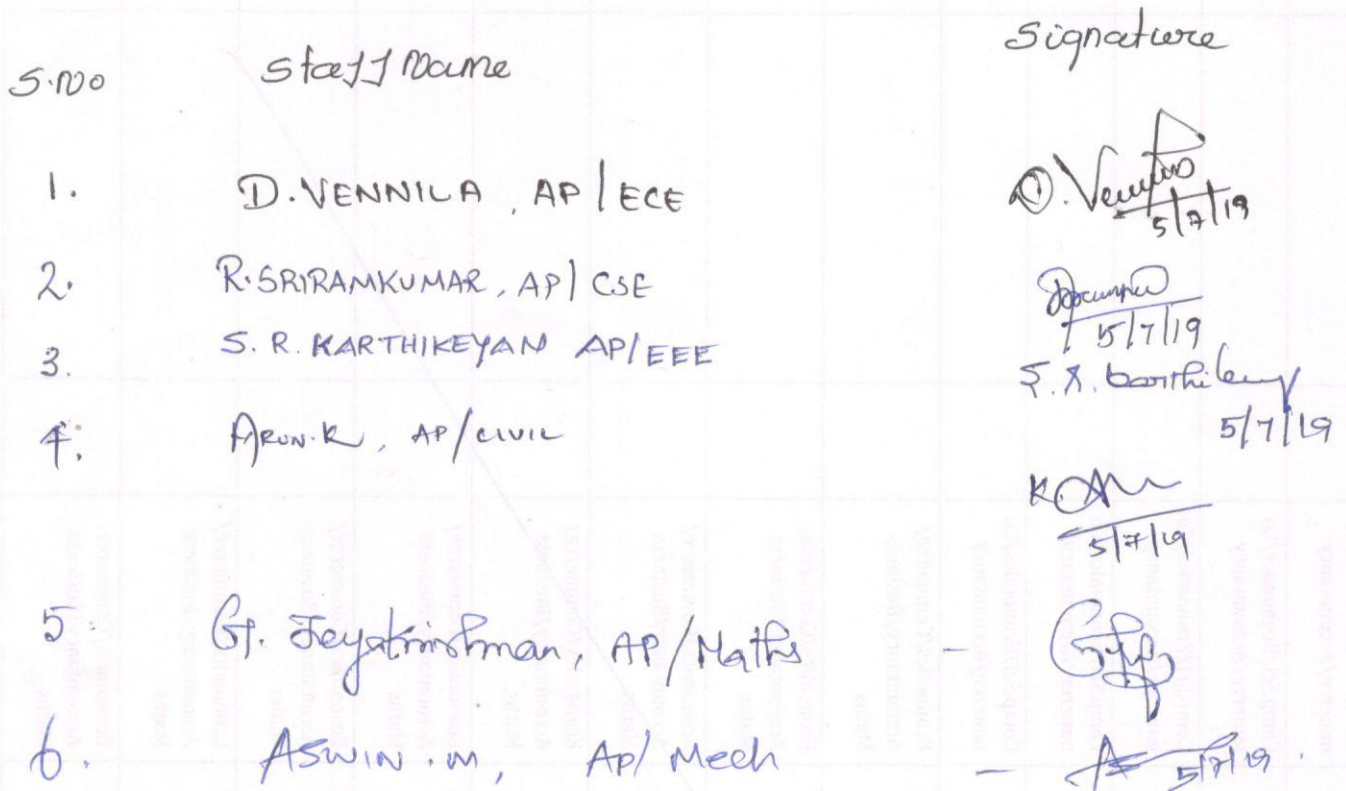 S.No Staff Name Signature
1. D. VENNILA, AP/ECE D. Vennila 5/7/19
2. R. SRIRAMKUMAR, AP/CSE 5/7/19
3. S. R. KARTHIKEYAN AP/EEE S. R. Karthikey 5/7/19
4. ARUN.K, AP/CIVIL K. 5/7/19
5. G. Jeyakrishnan, AP/Maths -
6. ASWIN.M, AP/Mech - 5/7/19.